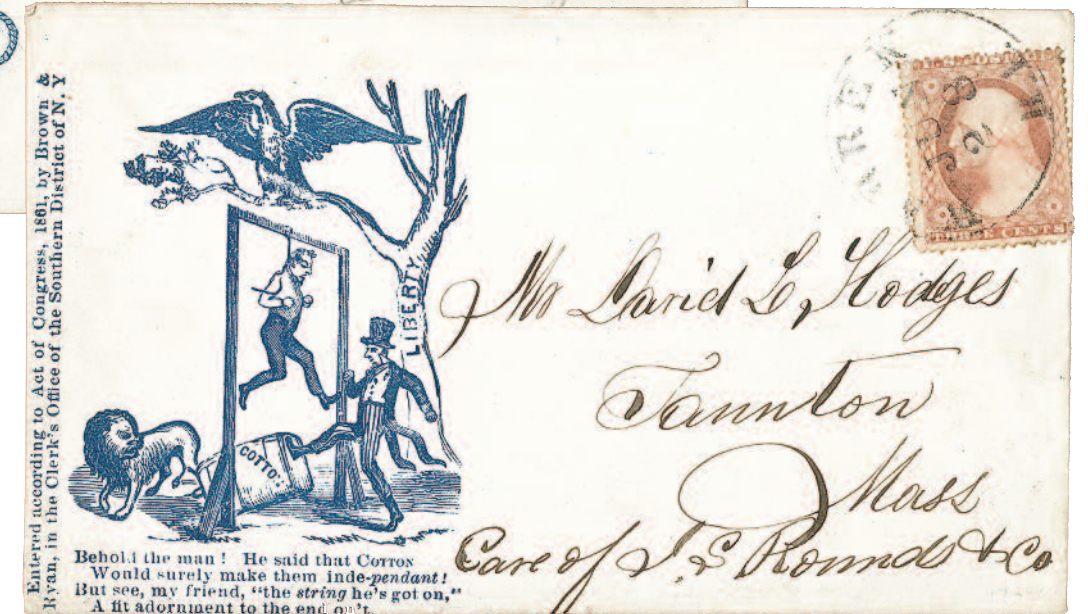 Entered according to Act of Congress, 1861, by Brown &
Ryan, in the Clerk's Office of the Southern District of N. Y
LIBERTY
COTTON
Behold the man! He said that COTTON
Would surely make them inde-pendant!
But see, my friend, "the string he's got on,"
A fit adornment to the end on't.
THREE CENTS
Mr David L, Hodges
Taunton
Mass
Care of J. S Rounds & Co